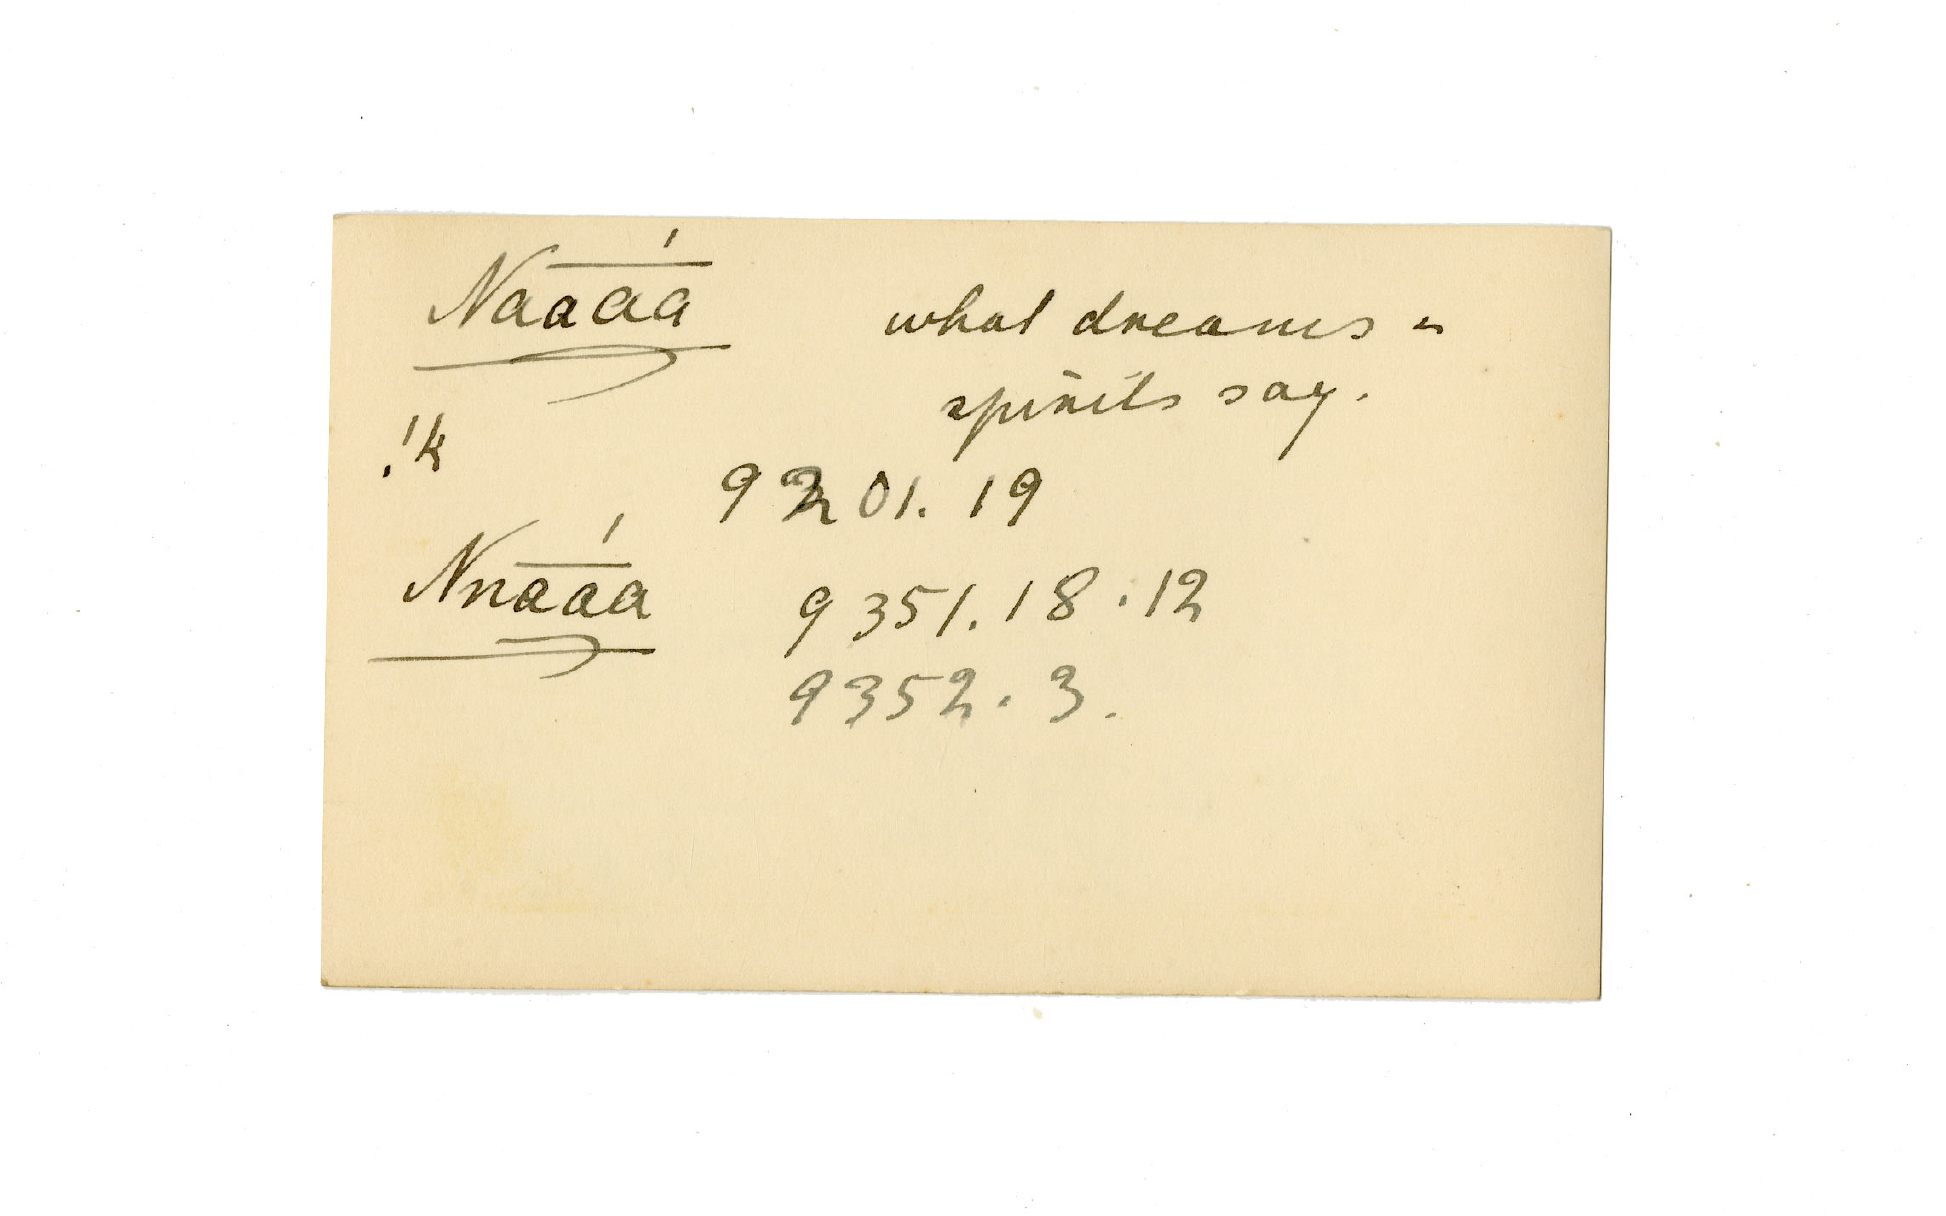 Naāá̄a what dreams or
spirits say.
!k
9201.19
Nnāá̄a 9351.18.12
9352.3.